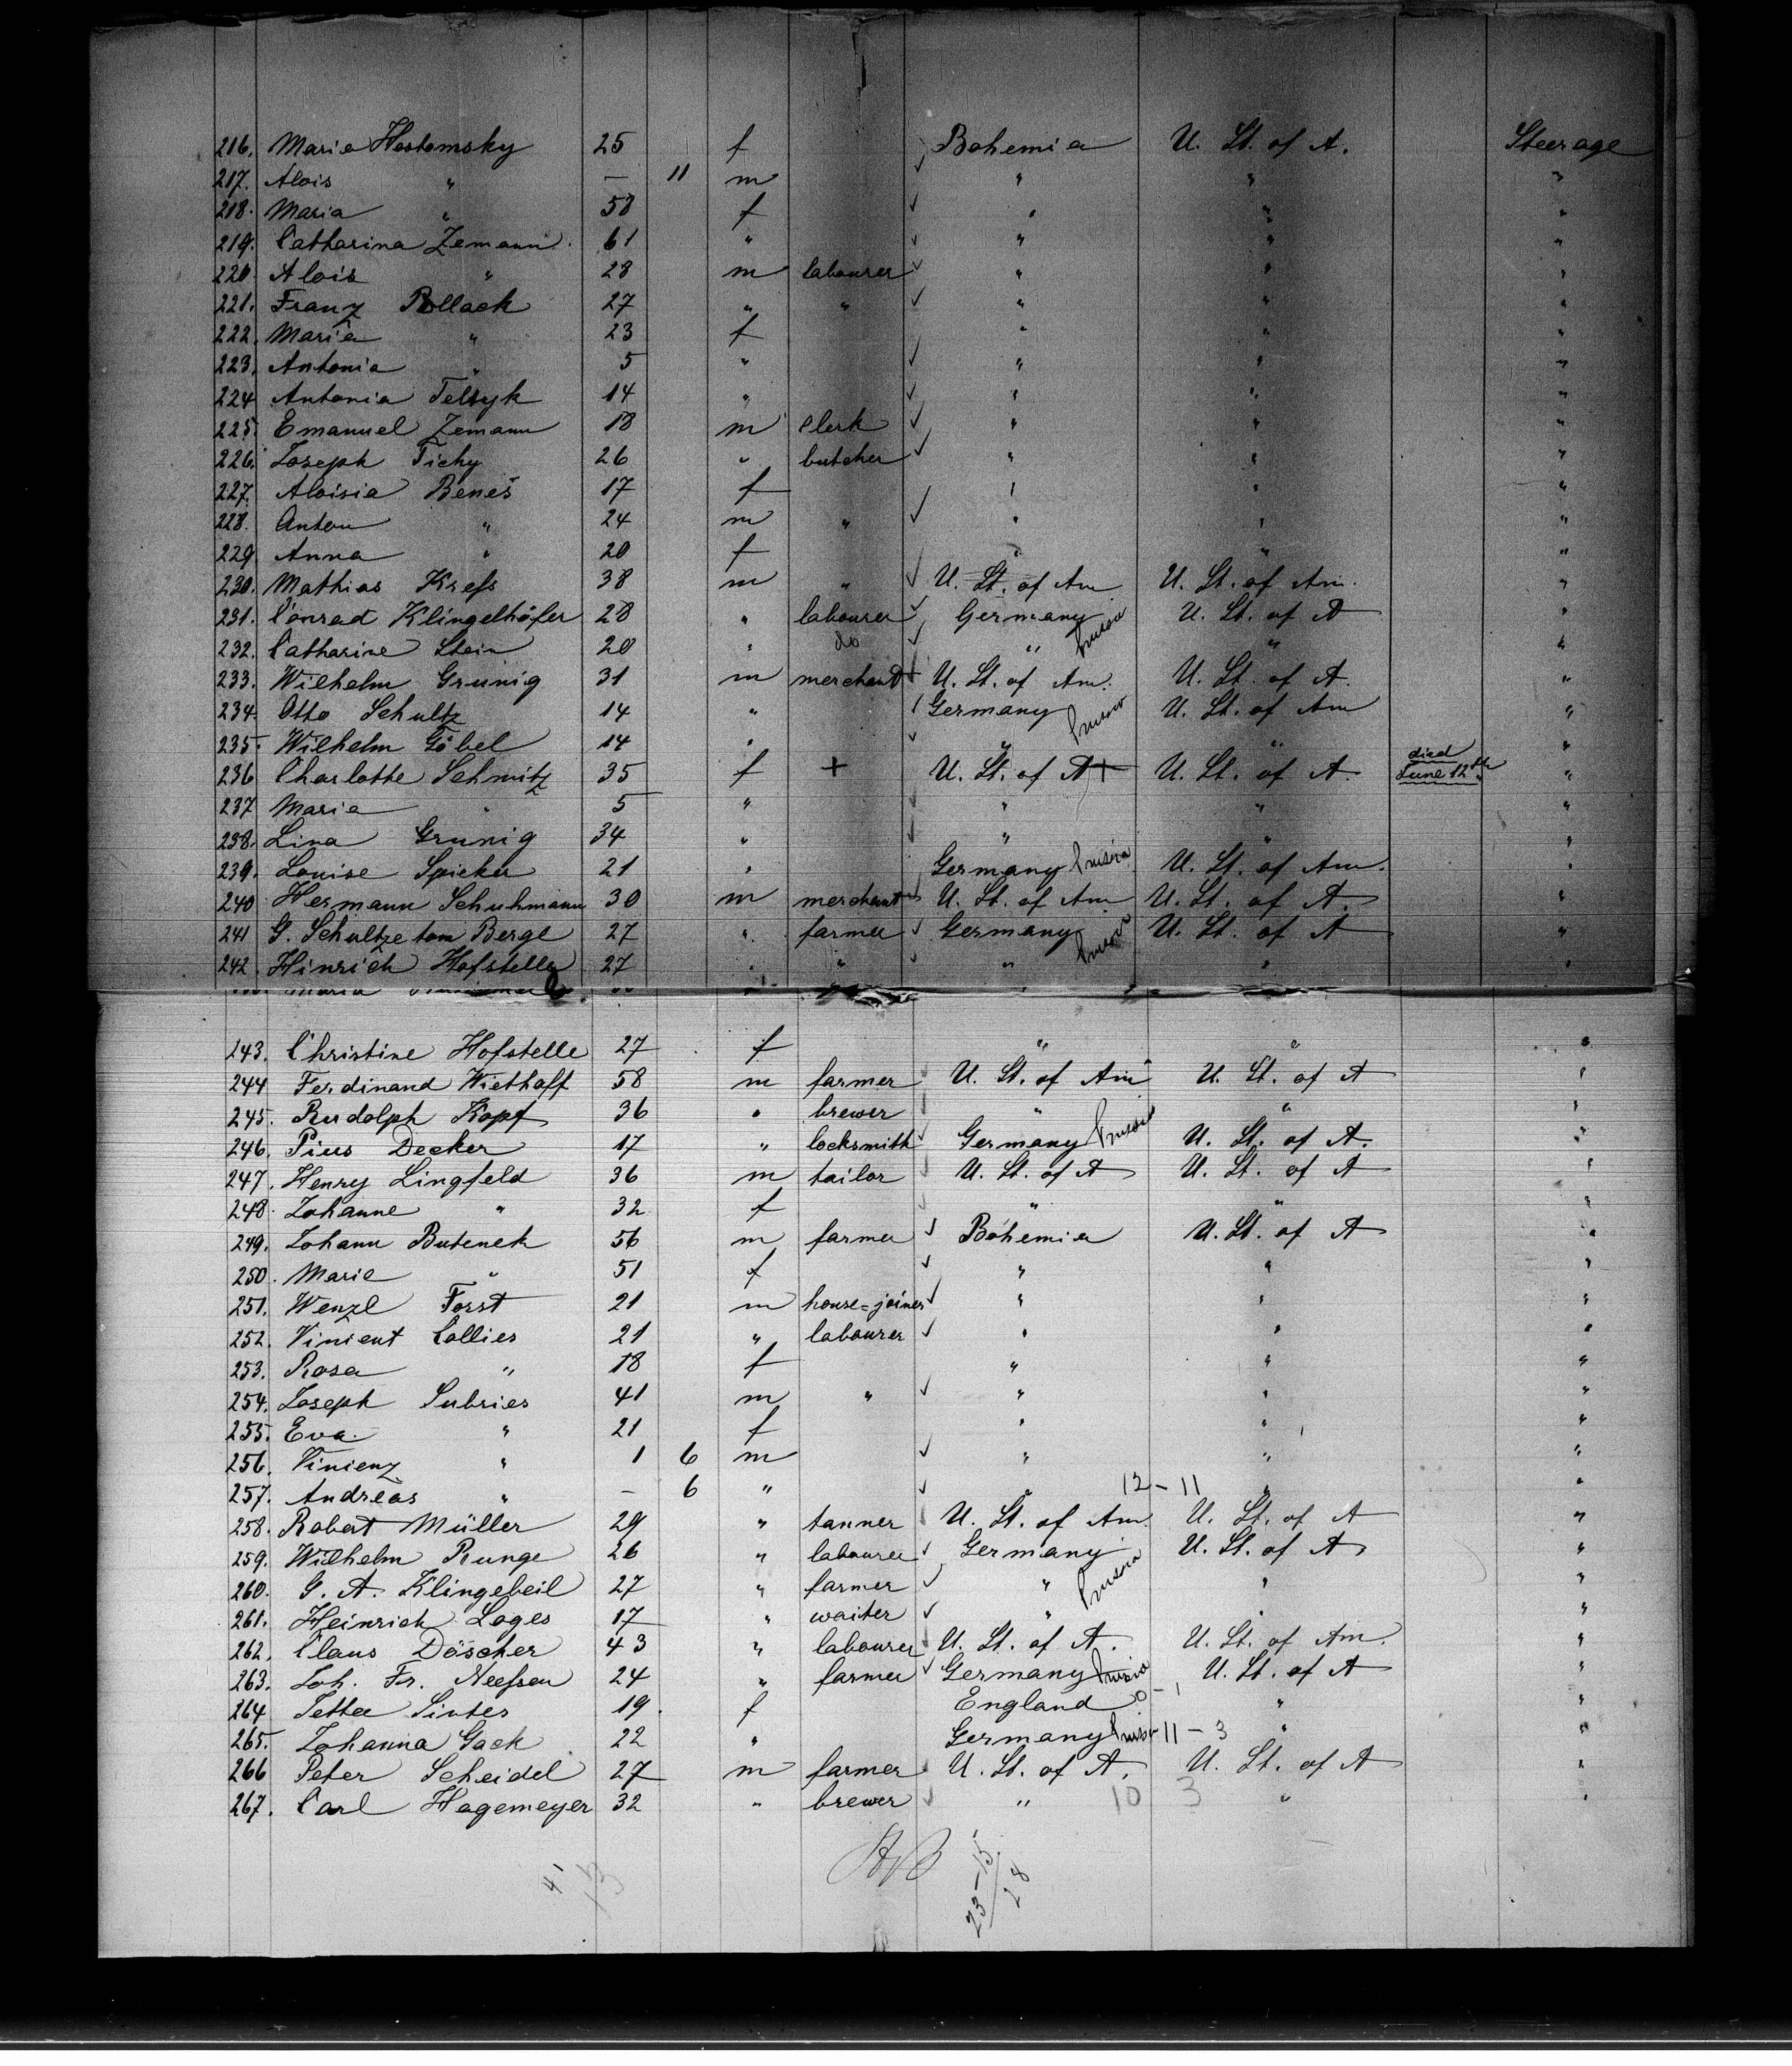 216. Marie Hostomsky 25 f Bohemia U. St. of A. Steerage
217. Alois " — 11 m " " "
218. Maria " 58 f " " "
219. Catharina Zemann 61 " " " "
220 Alois " 28 m labourer " " "
221. Franz Pollack 27 " " " " "
222. Maria " 23 f " " "
223. Antonia " 5 " " " "
224 Antonia Telsyk 14 " " " "
225. Emanuel Zemann 18 m Clerk " " "
226. Joseph Tichy 26 " butcher " " "
227. Aloisia Beneš 17 f " " "
228. Anton " 24 m " " " "
229 Anna " 20 f " " "
230. Mathias Kress 38 m " U. St. of Am U. St. of Am. "
231. Conrad Klingelhöfer 28 " labourer Germany U. St. of A "
232. Catharine Stein 20 " do " Prussia " "
233. Wilhelm Grunig 31 m merchant U. St. of Am. U. St. of A. "
234. Otto Schultz 14 " Germany Prussia U. St. of Am "
235. Wilhelm Göbel 14 " " " "
236 Charlotte Schmitz 35 f + U. St. of A + U. St. of A. died June 12th "
237 Maria " 5 " " " "
238. Lina Grunig 34 " " " "
239. Louise Spieker 21 " Germany Prussia U. St. of Am. "
240 Hermann Schuhmann 30 m merchant U. St. of Am U. St. of A. "
241 G. Schultze tom Berge 27 " farmer Germany Prussia U. St. of A "
242. Hinrich Hofstelle 27 " " " " "
243. Christine Hofstelle 27 f " " "
244 Ferdinand Wiethoff 58 m farmer U. St. of Am U. St. of A "
245. Rudolph Kopf 36 " brewer " " "
246. Pius Decker 17 " locksmith Germany Prussia U. St. of A. "
247. Henry Lingfeld 36 m tailor U. St. of A U. St. of A "
248. Johanne " 32 f " " "
249. Johann Butenek 56 m farmer Bohemia U. St. of A "
250. Marie " 51 f " " "
251. Wenzl Forst 21 m house=joiner " " "
252. Vincent Collies 21 " labourer " " "
253. Rosa " 18 f " " "
254. Joseph Subries 41 m " " " "
255. Eva " 21 f " " "
256. Vincenz " 1 6 m " " "
257. Andreas " — 6 " " 12 - 11 " "
258. Robert Müller 29 " tanner U. St. of Am. U. St. of A "
259. Wilhelm Runge 26 " labourer Germany U. St. of A "
260. G. A. Klingebeil 27 " farmer " Prussia " "
261. Heinrich Loges 17 " waiter " " "
262. Claus Döscher 43 " labourer U. St. of A. U. St. of Am. "
263. Joh. Fr. Neessen 24 " farmer Germany Prussia U. St. of A "
264 Jette Sintes 19. f England 0 - 1 " "
265. Johanna Gack 22 " Germany Pruss 11 - 3 " "
266 Peter Scheidel 27 m farmer U. St. of A. U. St. of A "
267. Carl Hagemeyer 32 " brewer " 10 3 " "
23-15
28
41
13